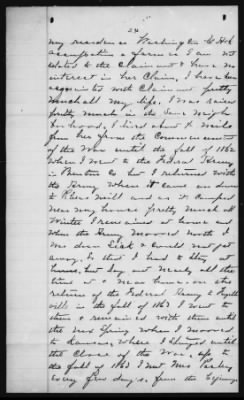 24
my residence Washington Co Ark
occupation a farmer I am not
related to the Claimant & have no
interest in her Claim, I have been
acquainted with Claimant pretty
much all my life. I was raised
pretty much in the same neigh
borhood. I lived about miles
from her from the Commencement
of the War until the fall of 1862
When I went to the Federal Army
in Benton Co but I returned with
the Army when it came on down
to Rhea's mill and as it Camped
near my house pretty much all
Winter I remained at home and
when the Army moved north I
was down Sick & could not get
away. So that I had to Stay at
home, but lay out nearly all the
time at & near home. on the
return of the Federal Army to Fayette
ville in the fall of 1863 I went to
them & remained with them until
the next Spring when I moved
to Kansas, where I stayed until
the Close of the War, up to
the fall of 1863 I met Mrs
Every few days. from the beginning